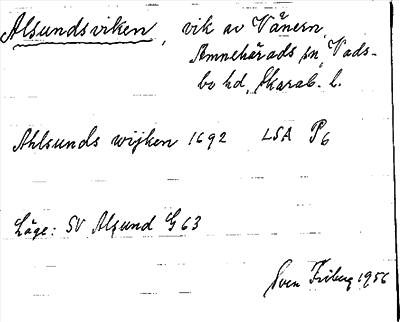 Alsundsviken, vik av Vänern,
Amnehärads sn, Vads-
bo hd, Skarab. l.
Ahlsunds wijken 1692 LSA P6
Läge: SV Alsund G63
Sven Friberg 1956